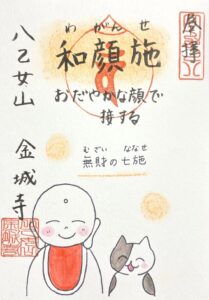 奉拝
わがんせ
和顔施
おだやかな顔で
接する
むざい ななせ
無財の七施
八乙女山 金城寺